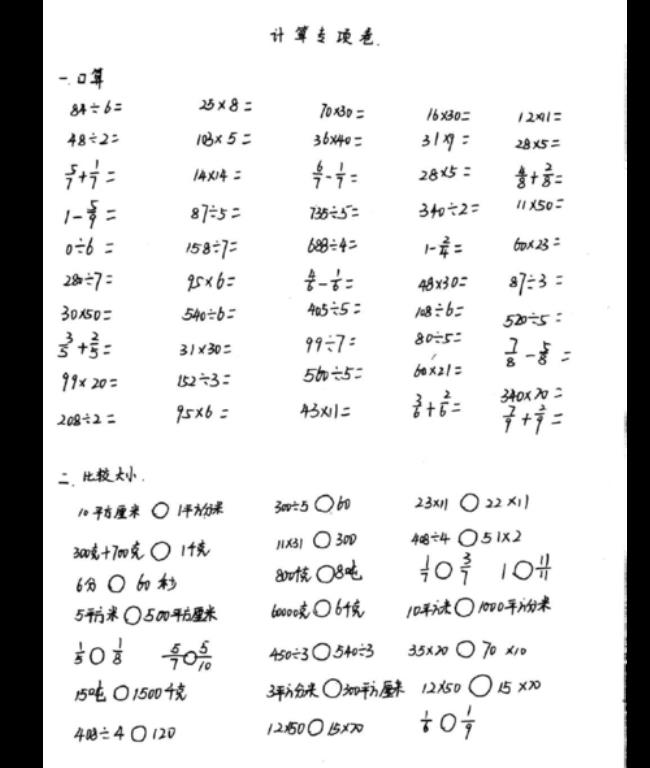 计算专项卷.
一.口算
84÷6= 25×8= 70×30= 16×30= 12×11=
48÷2= 103×5= 36×40= 31×9= 28×5=
5/7+1/7= 14×14= 6/7-1/7= 28×5= 4/8+2/8=
1-5/9= 87÷5= 735÷5= 340÷2= 11×50=
0÷6= 158÷7= 688÷4= 1-2/4= 60×23=
280÷7= 95×6= 4/6-1/6= 48×30= 87÷3=
30×50= 540÷6= 405÷5= 108÷6= 520÷5=
3/5+2/5= 31×30= 99÷7= 80÷5= 7/8-5/8=
99×20= 152÷3= 560÷5= 60×21= 340×20=
208÷2= 95×6= 43×11= 3/6+2/6= 7/9+2/9=
二.比较大小.
10平方厘米○1平方分米 300÷5○60 23×11○22×11
300克+700克○1千克 11×31○300 408÷4○51×2
6分○60秒 800千克○8吨 1/7○3/7 1○11/11
5平方米○500平方厘米 60000克○6千克 10平方米○1000平方分米
1/5○1/8 5/7○5/10 450÷3○540÷3 35×20○70×10
15吨○1500千克 3平方分米○300平方厘米 12×50○15×20
408÷4○120 12×50○15×20 1/6○1/9